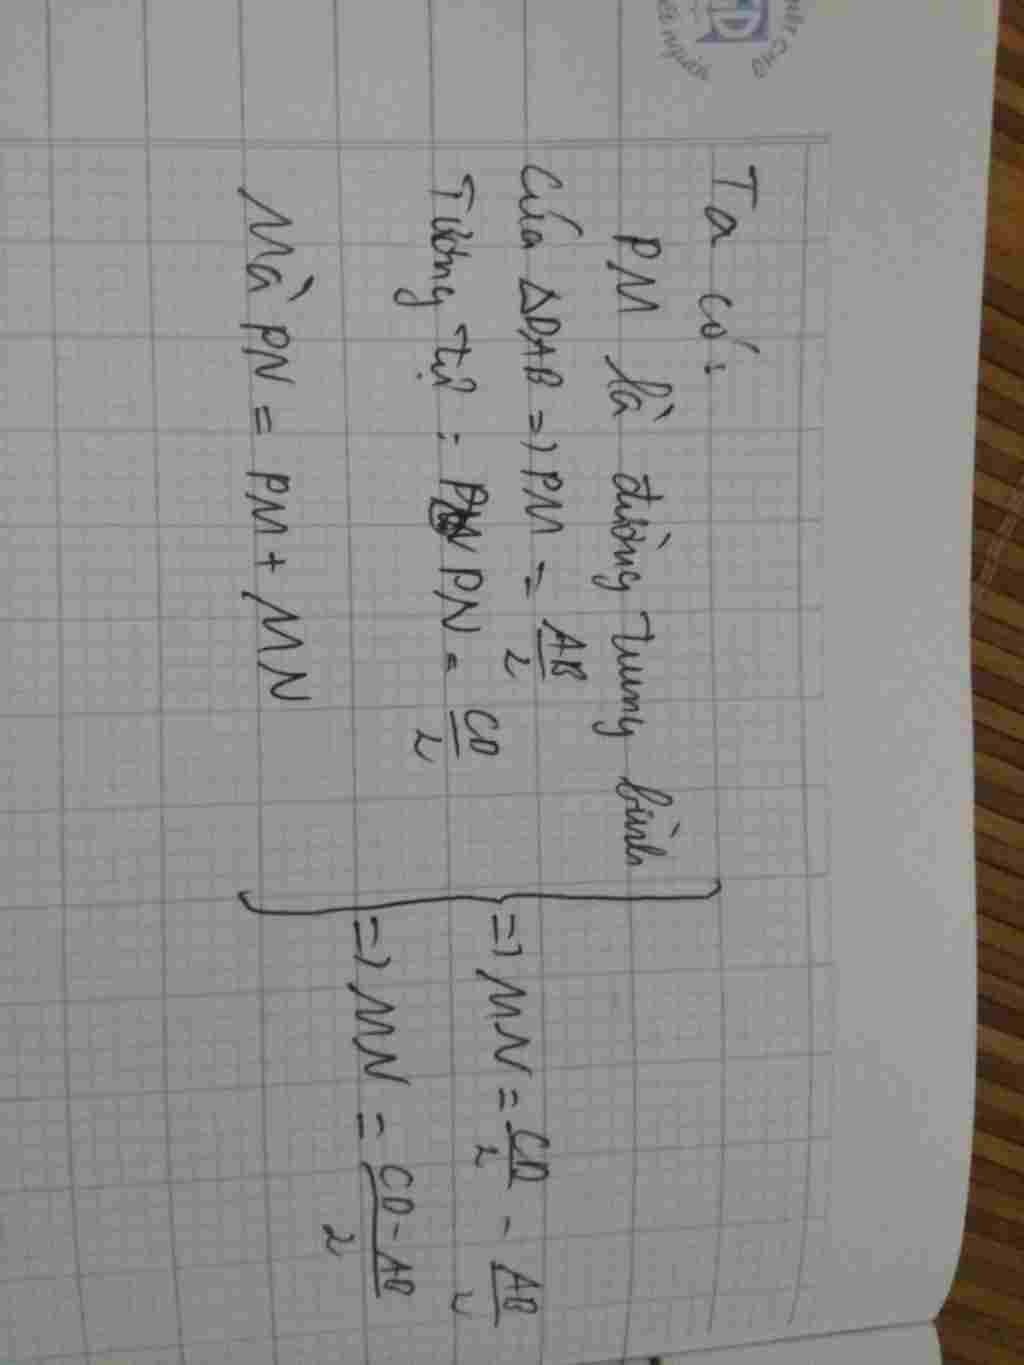 Ta có:
PM là đường trung bình
của ΔDAB => PM = AB/2
Tương tự: PN = CD/2
Mà PN = PM + MN
=> MN = CD/2 - AB/2
=> MN = CD-AB/2